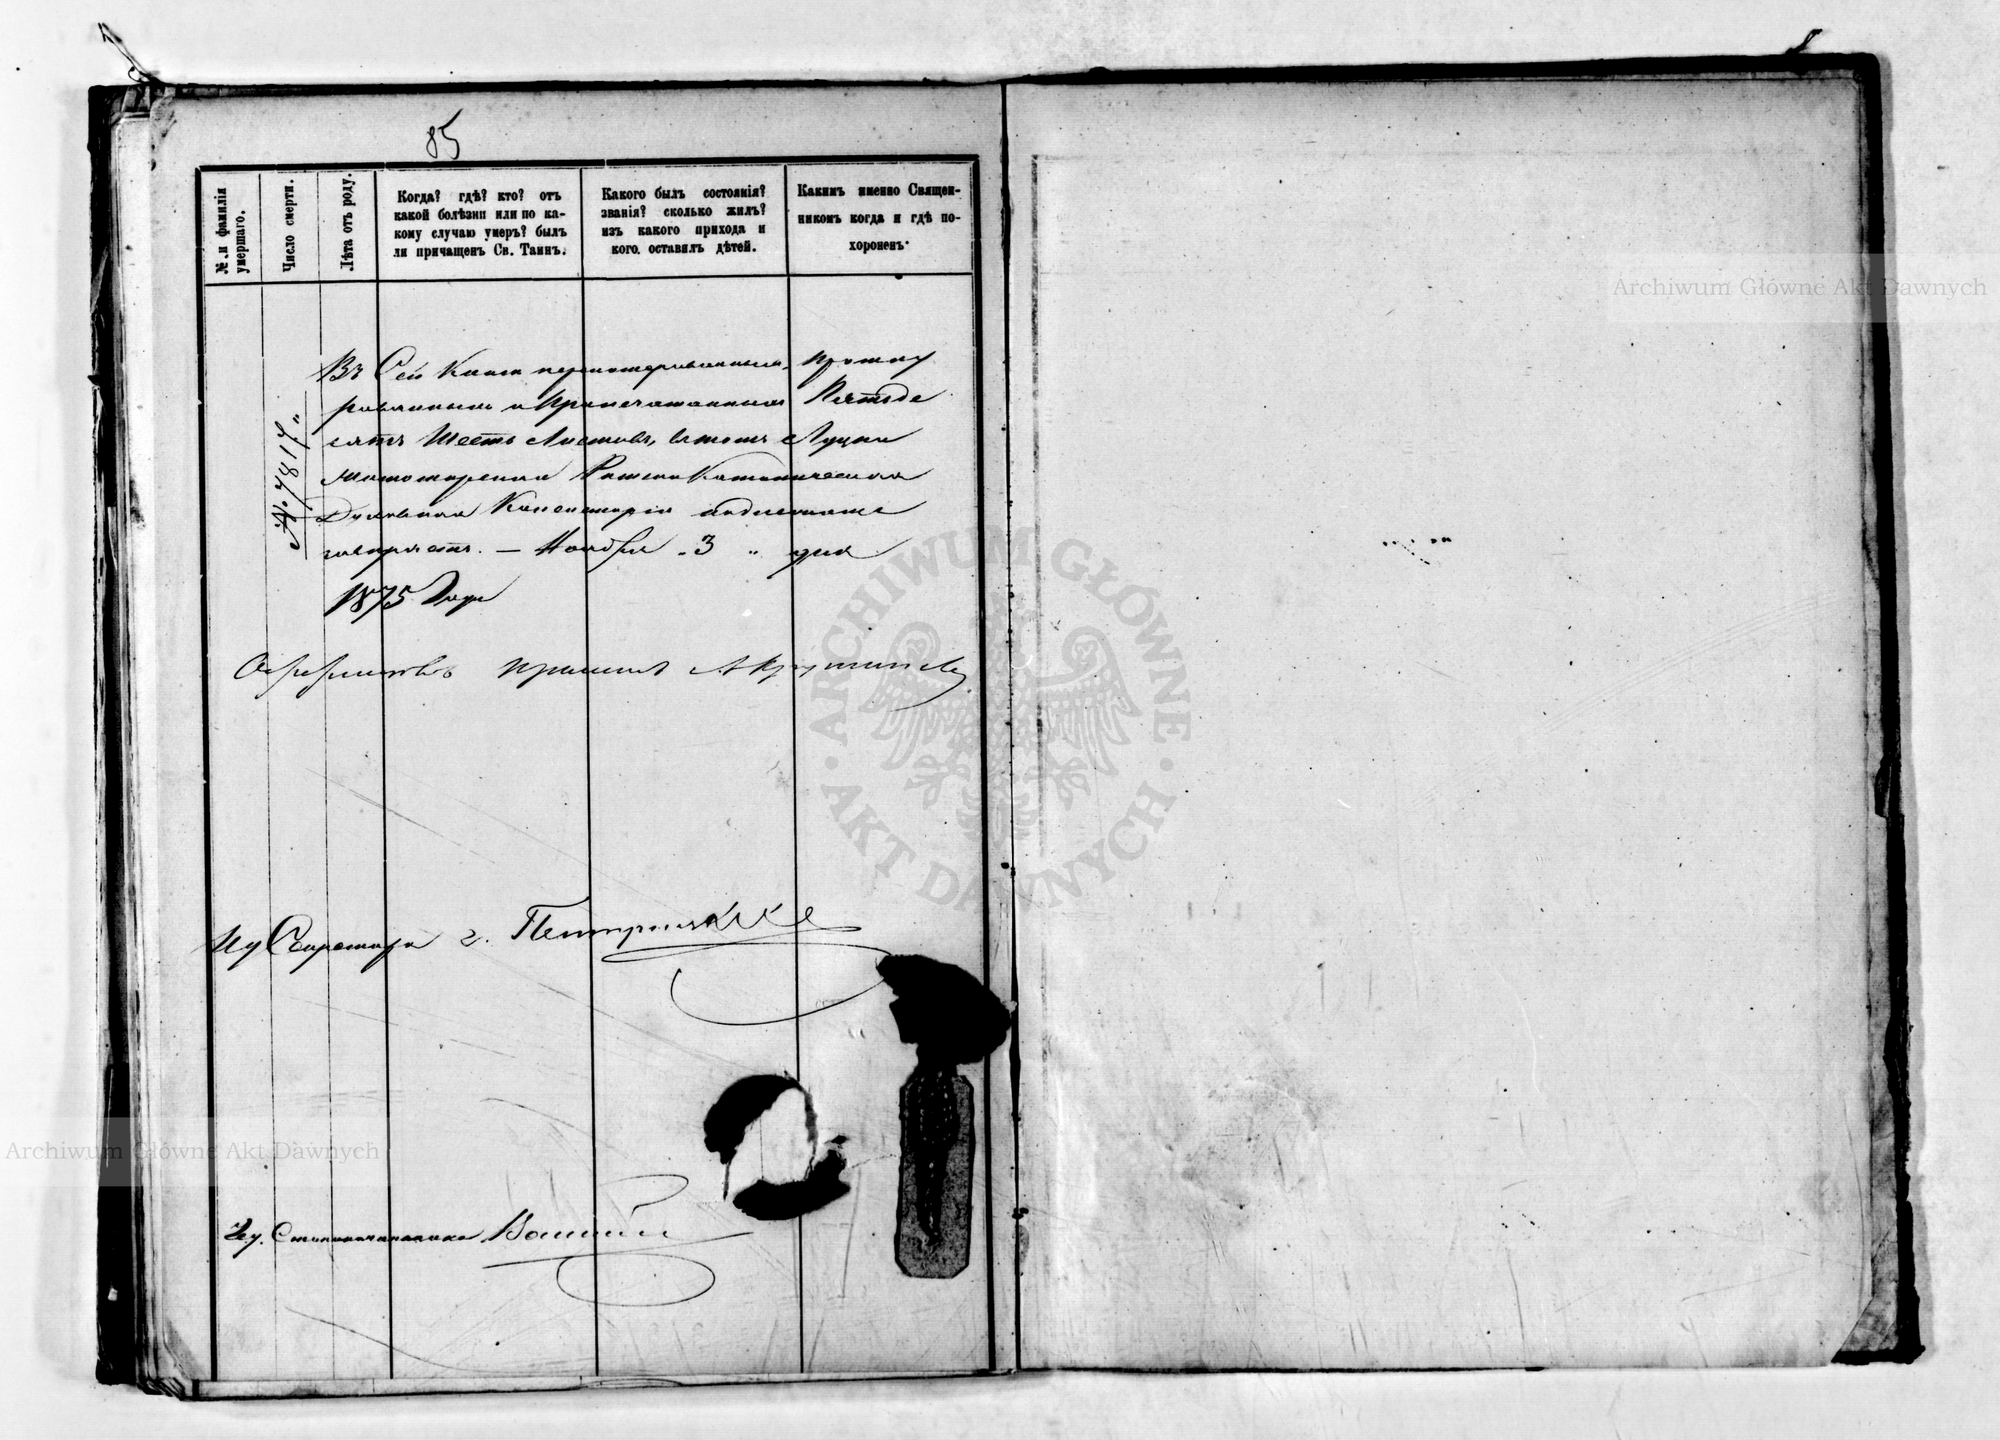 85
№. и фамилія
умершаго.
Число смерти.
Лѣта отъ роду.
Когда? гдѣ? кто? отъ
какой болѣзни или по ка-
кому случаю умеръ? былъ
ли причащенъ Св. Таинъ.
Какого былъ состоянія?
званія? сколько жилъ?
изъ какого прихода и
кого. оставилъ дѣтей.
Какимъ именно Священ-
никомъ когда и гдѣ по-
хороненъ.
№. 7817.
Въ Сей Книгѣ перенумерованныхъ, прошну
рованныхъ и Припечатанныхъ Пятьде
сятъ Шесть Листовъ, въ томъ Луцко
Житомирская Римско Католическая
Духовная Консисторія
. — Ноября „3„ дня
1875 Года
Ассесоръ
Ид Секретаря г.
Ид. Столоначальника
Archiwum Główne Akt Dawnych
Archiwum Główne Akt Dawnych
ARCHIWUM GŁÓWNE · AKT DAWNYCH ·